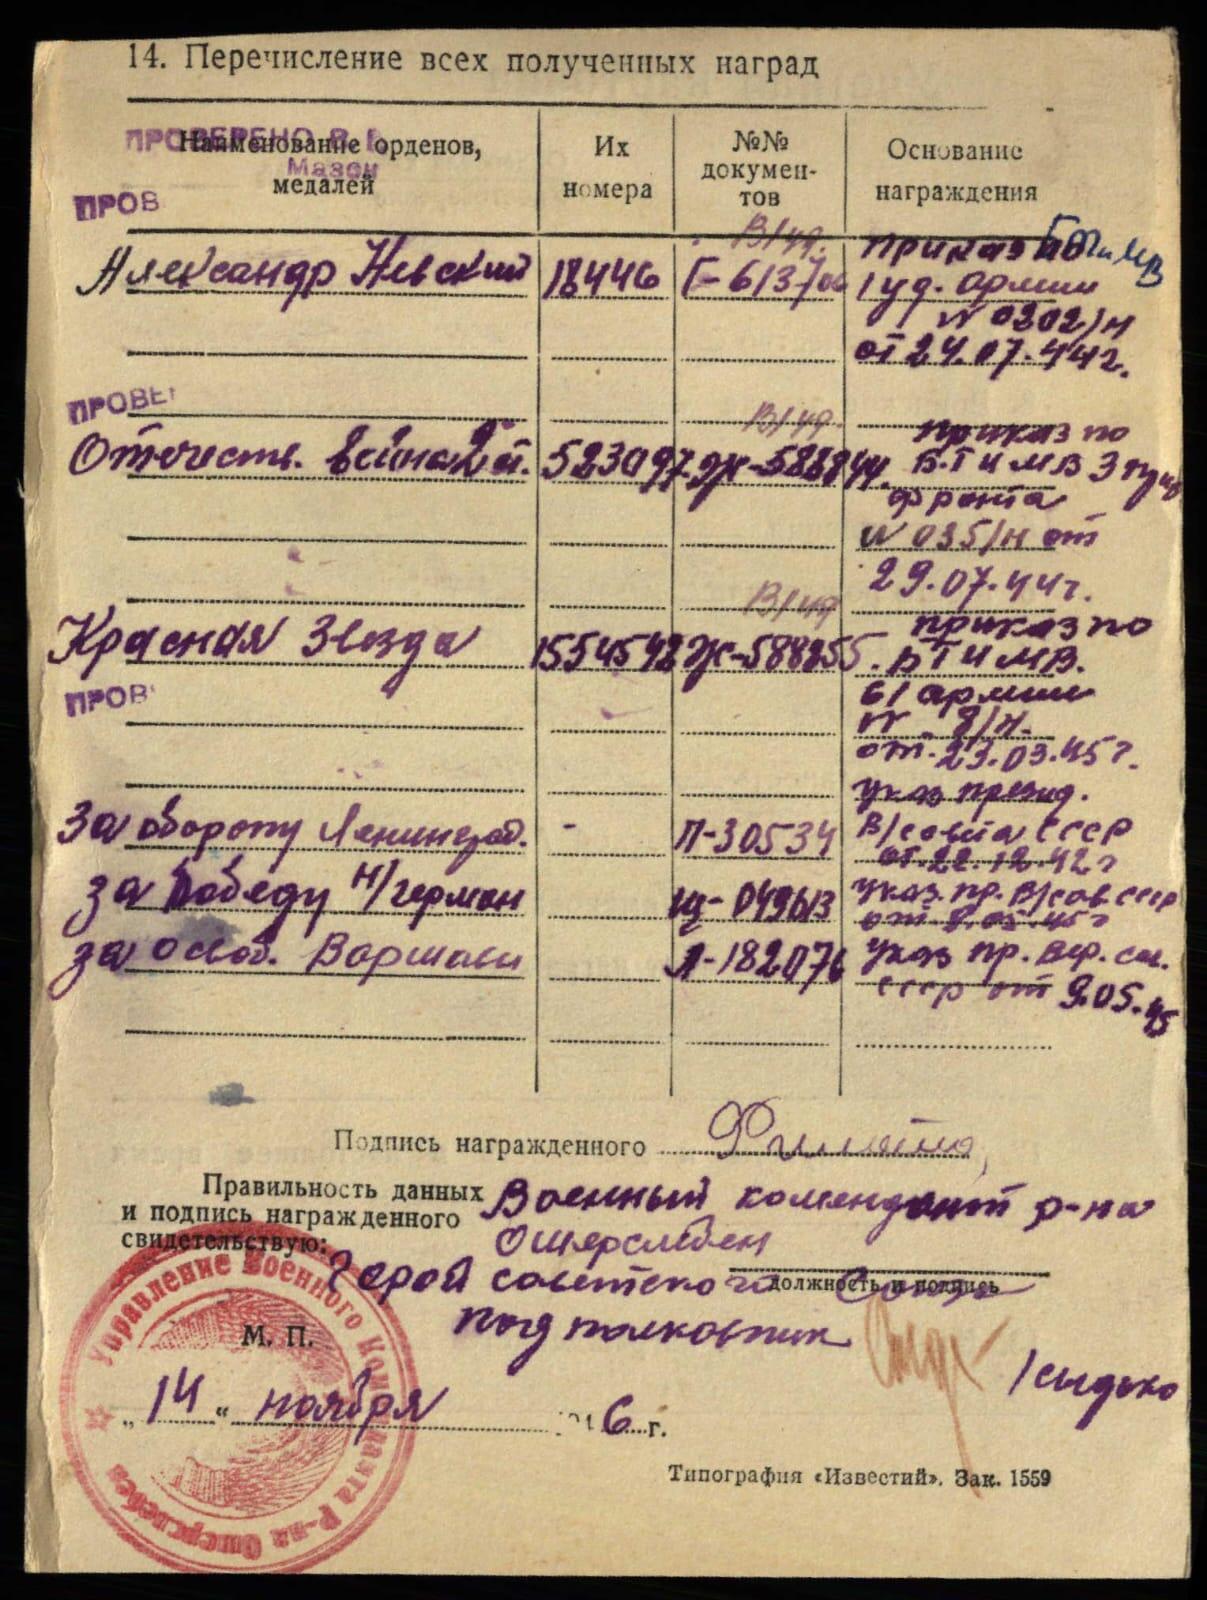 14. Перечисление всех полученных наград
ПРОВЕРЕНО В В
Наименование орденов,
медалей
Их
номера
№№
докумен-
тов
Основание
награждения
ПРОВ
Александр Невский 18446 приказ по БТ и МВ
1 уд. армии
№ 0202/н
от 24.07.44г.
ПРОВЕР
В/уд.
Отечеств. война 2 ст. 523097 Ж-588844 приказ по
БТ и МВ 3 приб
фронта
№ 035/н от
29.07.44г.
В/уд
Красная Звезда 1554542 Ж-588855. приказ по
БТ и МВ.
61 армии
№ 8/н.
от 23.03.45г.
ПРОВ
За оборону Ленинград. - Л-30534 указ презид.
В/совета СССР
от 22.12.42г
за победу н/герман Щ-049613 указ пр. В/сов. СССР
от 9.05.45г
за освоб. Варшавы Л-182076 указ пр. Вер. сов.
СССР от 9.05.45
Подпись награжденного
Правильность данных
и подпись награжденного
свидетельствую:
Военный комендант р-на
Ошерслебен
Герой советского Союза
должность и подпись
подполковник /Сыдько
М. П.
„14“ ноября 1946 г.
Управление Военного Коменданта Р-на Ошерслебен
Типография «Известий». Зак. 1559